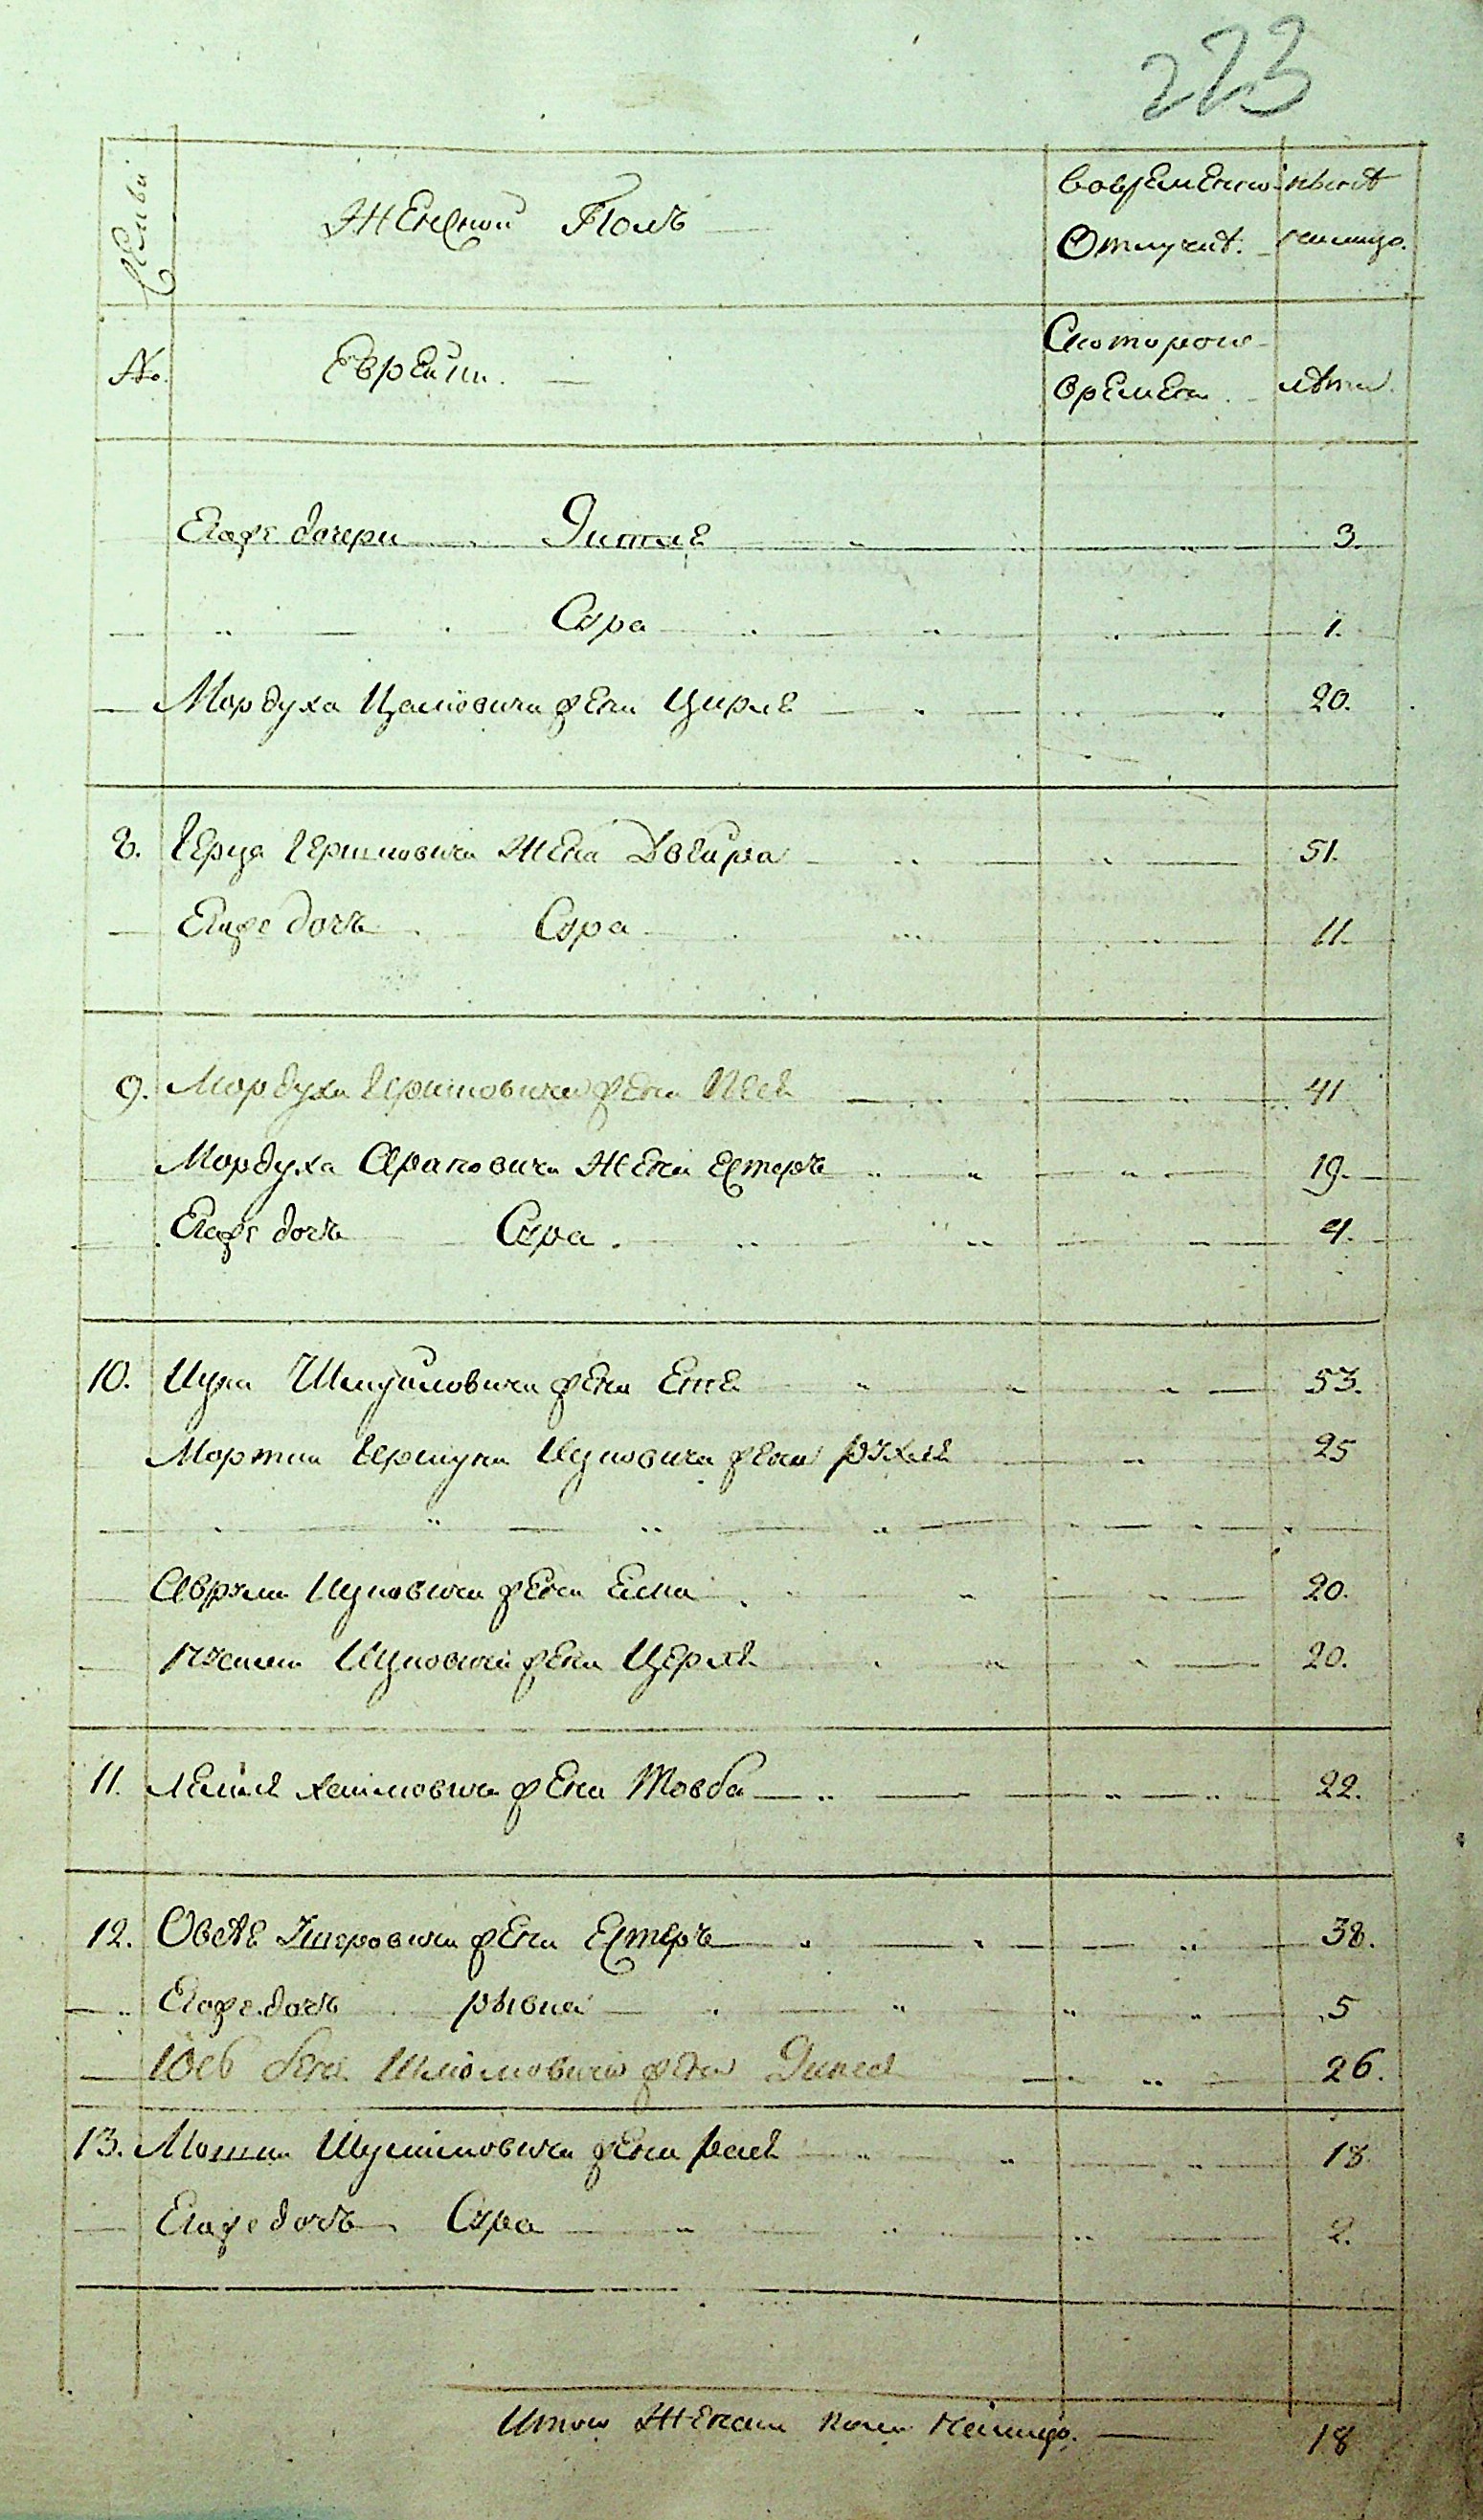 223
Семьи
Женской Полъ
Во временной отлучкѣ.
ныне налицо.
№.
Еврейки.
Скоторого времени.
лѣта.
Егоже дочери Эитле 3.
Сура 1.
Мордуха Ицковича жена Цирле 20.
8. Герца Гершковича Жена Двейра 51.
Егоже дочь Сура 11.
9. Мордуха Гершковича жена Песе 41
Мордуха Ароновича Жена Естеръ 19.
Егоже дочь Сура 4.
10. Ицка Шмуйловича жена Енте 53.
Мортка Гершука Ицковича жена Рухле 25
Аврума Ицковича жена Елка 20.
Ицковича жена Церле 20.
11. Лейбе Хаимовича жена Товба 22.
12. Овсѣе жена Естеръ 38.
Егоже дочь Рывка 5
Шлиомовича жена 26.
13. Мошка жена 18
Егоже дочь Сура 2.
Итого Женска пола налицо. 18